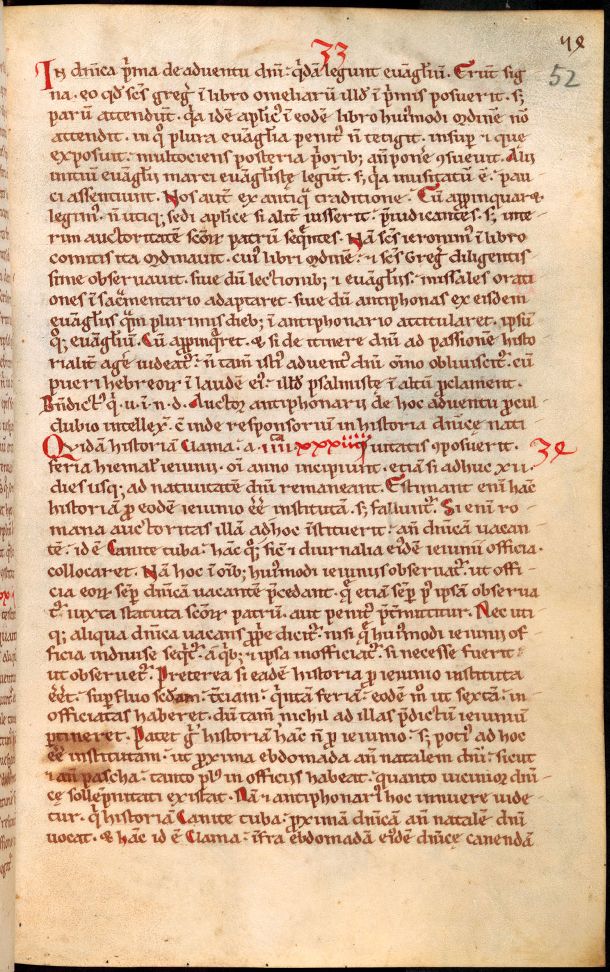 33
52
In dn̄ica p̄ma de adventu dn̄i · q̄dā legunt euāgliū · Erūt sig
na · eo qd̄ sc̄s greg̅ ī libro omeliarū illd̄ ī p̄mis posuerit · s;
parū attendūt · q̄a idē ap̄lic᷒ ī eodē libro hui᷒modi ordinē nō
attendit · in q̊ plura euāglia penit᷒ n̄ tetigit · insup̄ ⁊ que
exposuit · multociens posteria p̄orib; an̄ponere ꝯsueuit · Alii
initiū euāglii marci euāgliste legūt · s; q̄a inusitatū ē · pau
ci assentiunt · Nos aut̄ ex antiq̄ traditione · Cū app̄inquar&
legim᷒ · n̄ utiq; sedi ap̄lice si alit̄ iusserit · p̄iudicantes · s; inte
rim auctoritatē sc̄oꝝ patrū seq̄ntes · Nā sc̄s ieronim᷒ ī libro
comitis ita ordinauit · cui᷒ libri ordinē · ⁊ sc̄s Greg̅ diligentis
sime obseruauit · siue dū lectionib; ⁊ euāgliis · missales orati
ones ī sac̄mentario adaptaret · siue dū antiphonas ex eisdem
euāgliis q̄m plurimis dieb; ī antiphonario attitularet · ipsū
q; euāgliū · Cū app̄inq̄ret · & si de itinere dn̄i ad passionē histo
rialit̄ agere uideat᷒ · n̄ tam̄ isti᷒ aduent᷒ dn̄i om̄o obliuiscit᷒ · cū
pueri hebreoꝝ ī laudē ei᷒ · illd̄ psalmistę ī altū p̄clament ·
Bn̄dict᷒ q̇ · u · ī · n · d · Auctor antiphonarii de hoc aduentu p̄cul
dubio intellex̄ · & inde responsoriū in historia dn̄icę nati
uitatis ꝯposuerit · 34
Quidā historiā Clama · a · iiii xxxiiii
feria hiemal᷒ ieiunii · om̄i anno incipiunt · etiā si adhuc xii ·
dies usq; ad natiuitatē dn̄i remaneant · Estimant eni hāc
historiā p̄ eodē ieiunio eē̄ institutā · s; fallunt᷒ · Si enī ro
mana auctoritas illā ad hoc īstituerit · an̄ dn̄icā uacan
tē · id ē Canite tuba · hāc q; sic̄ ⁊ diurnalia ei᷒dē ieiunii officia ·
collocaret · Nā hoc ī om̄ib; hui᷒modi ieiuniis obseruat᷒ · ut offi
cia eoꝝ sēp dn̄icā uacantē p̄cedant · q̄ etiā sēp p᷒ ipsā obserua
t᷒ · iuxta statuta sc̄oꝝ patrū · aut penit᷒ p̄t̄mittit᷒ · Nec uti
q; aliqua dn̄ica uacans p̄p̄e dicit᷒ · nisi q̄ hui᷒modi ieiunii of
ficia indiuise seq̄t᷒ · a q̇b; ⁊ ipsa inofficiat᷒ · si necesse fuerit ·
ut obseruet᷒ · Preterea si eadē historia p̄ ieiunio instituta
eē̄t · sup̄fluo sc̄dam · t̄ciam · q̇ntā feriā · eodē m̊ ut sextā · in
officiatas haberet · dū tam̄ nichil ad illas p̄dictū ieiuniū
p̄tineret · Patet g̊ historiā hāc n̄ p̄ ieiunio · s; poti᷒ ad hoc
eē̄ institutam · ut p̄xima ebdomada an̄ natalem dn̄i · sicut
⁊ an̄ pascha · tanto pl᷒ in officiis habeat · quanto uicinior dn̄i
cę sollēpnitati existat · Nā ⁊ antiphonari᷒ hoc innuere uide
tur · q̄ historiā Canite tuba · p̄ximā dn̄icā an̄ natalē dn̄i
uocat · & hāc id ē Clama · īfra ebdomadā ei᷒dē dn̄icę canendā